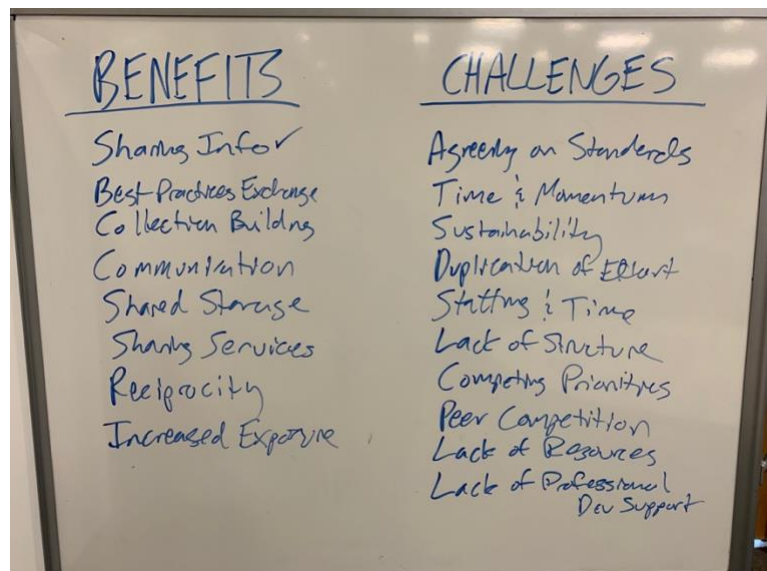 BENEFITS
Sharing Infor
Best Practices Exchange
Collection Building
Communication
Shared Storage
Sharing Services
Reciprocity
Increased Exposure
CHALLENGES
Agreeing on Standards
Time & Momentum
Sustainability
Duplication of Effort
Staffing & Time
Lack of Structure
Competing Priorities
Peer Competition
Lack of Resources
Lack of Professional
Dev Support